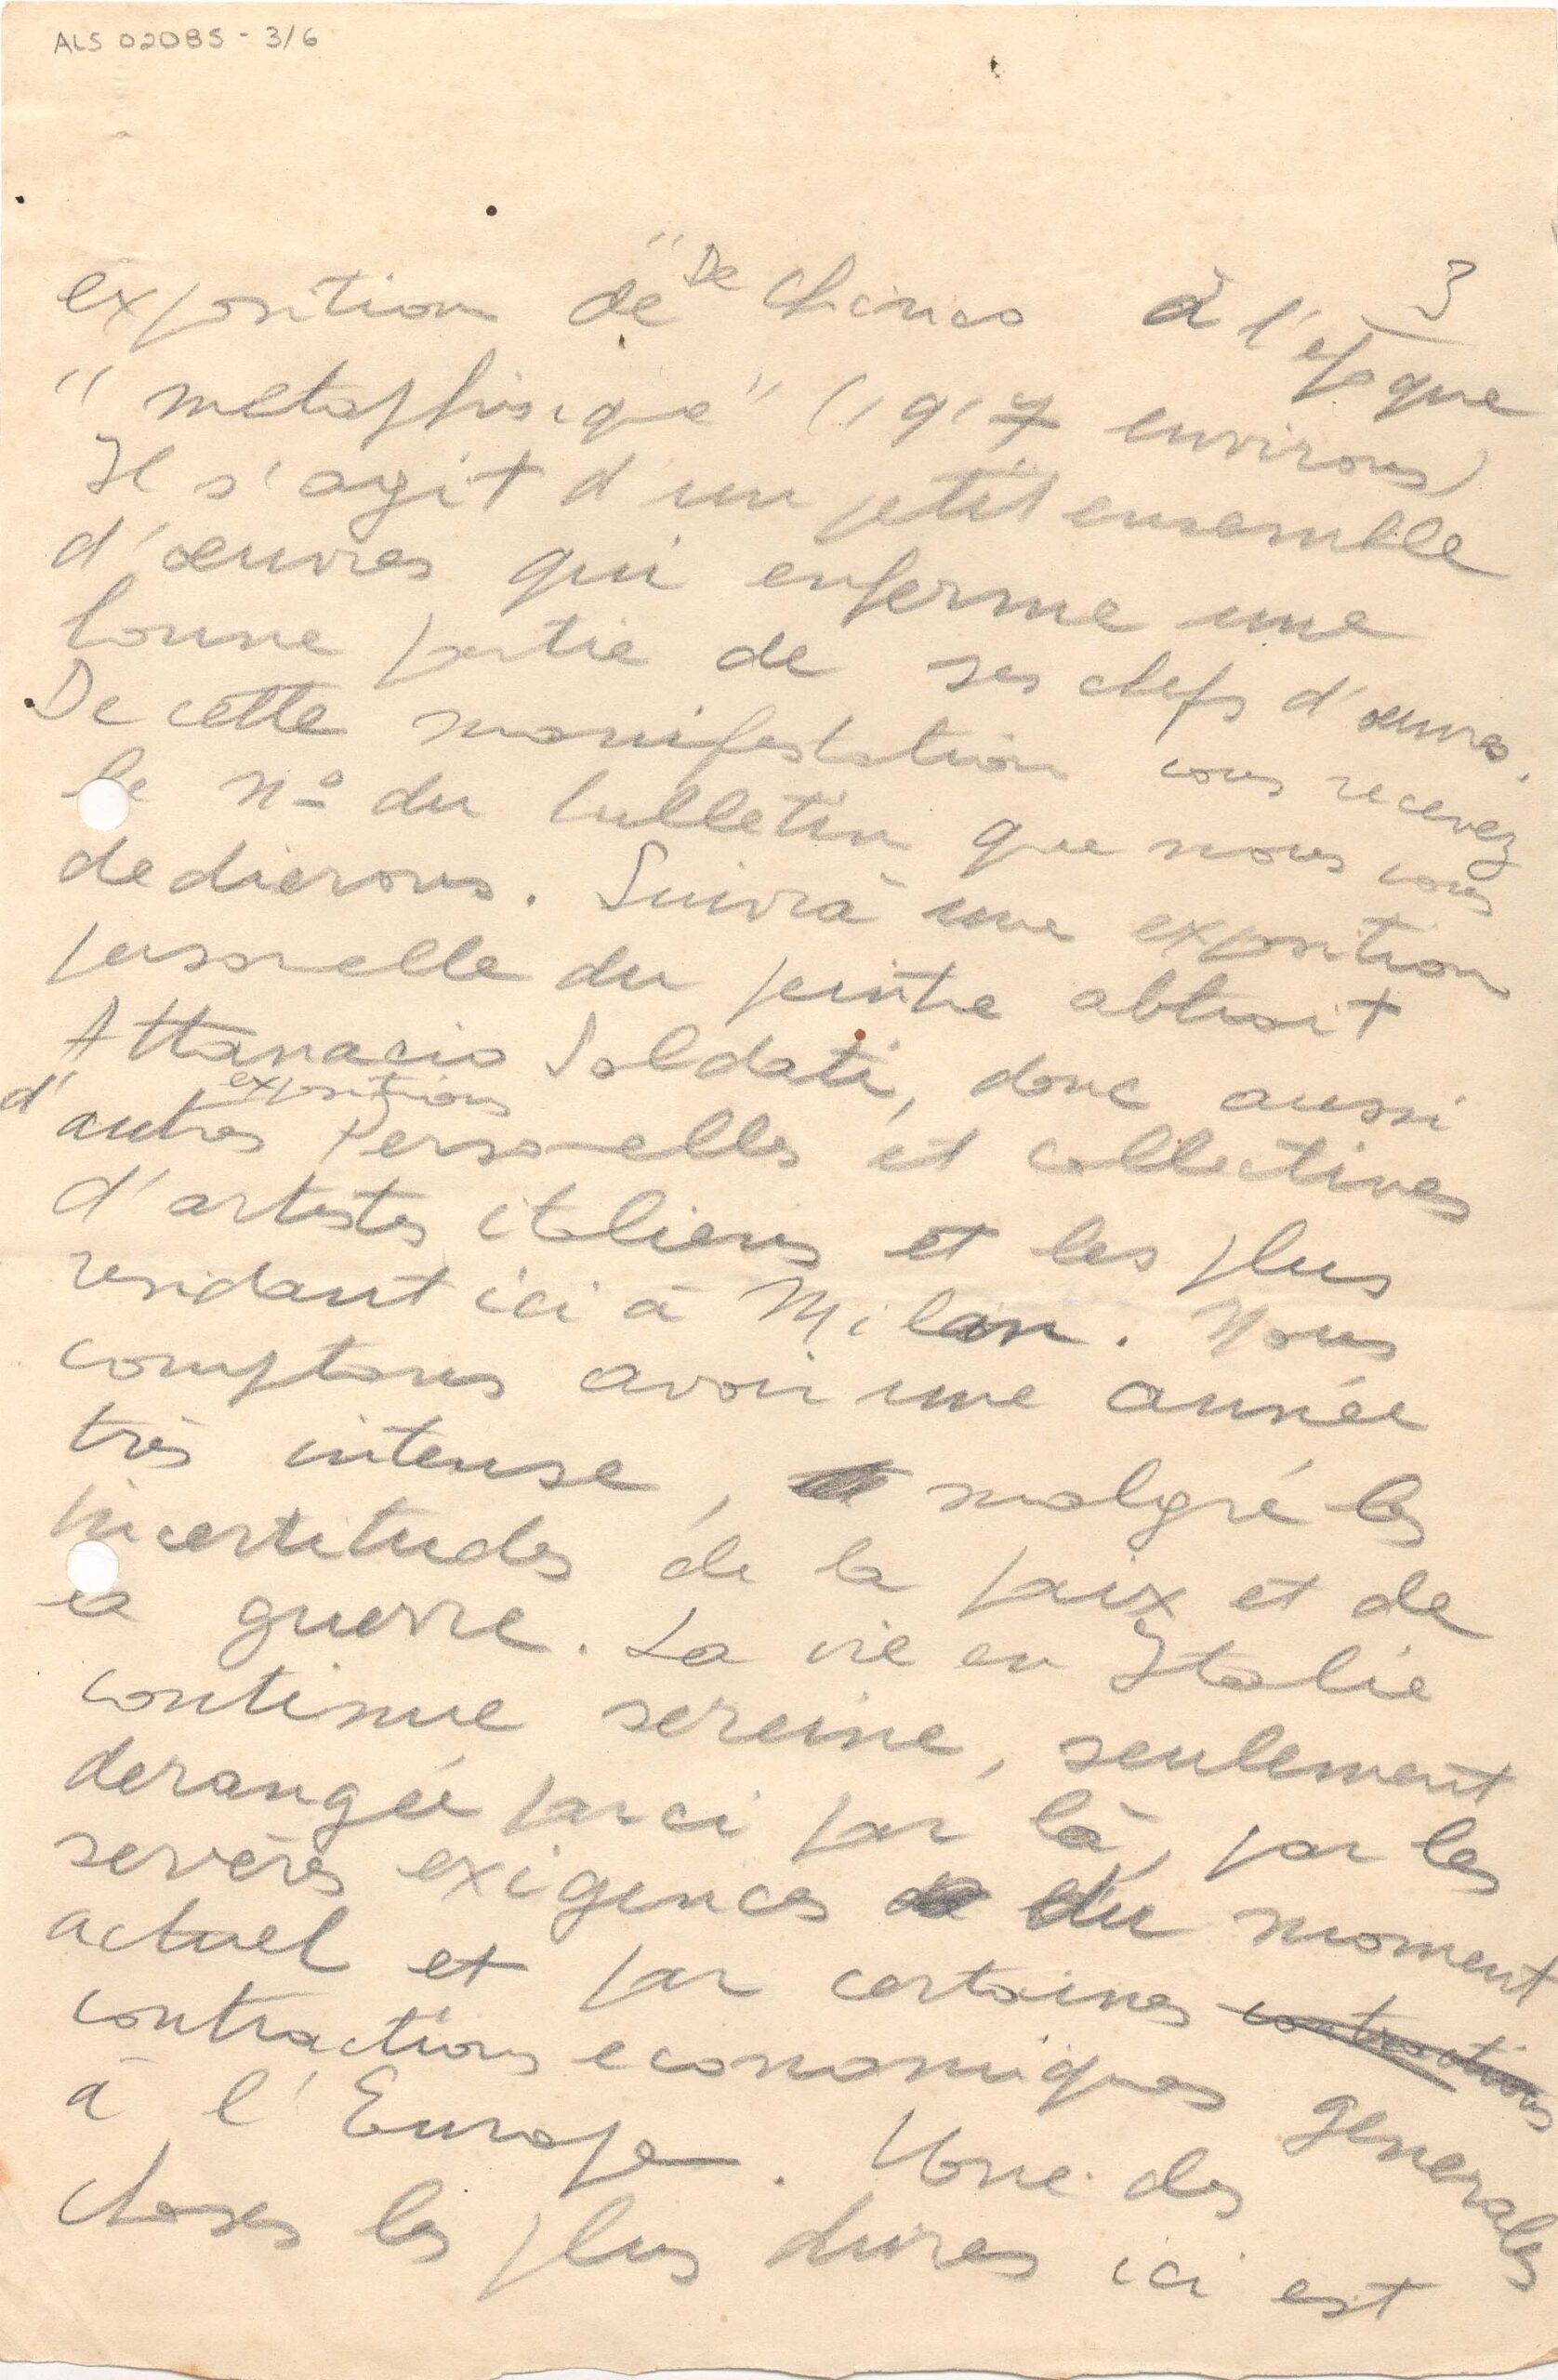 ALS 02085 - 3/6
3
exposition de "De Chirico à l'epoque
"metaphisique" (1917 environs)
Il s'agit d'un petit ensemble
d'œuvres qui enferme une
bonne partie de ses chefs d'œuvres.
De cette manifestation vous recevez
le nº du bulletin que nous vous
dedierons. Suivrà une exposition
personelle du peintre abtrait
Attanacio Soldati, donc aussi
d'autres expositions personelles et collectives
d'artistes italiens et les plus
residant ici à Milan. Nous
comptons avoir une année
très intense, malgré les
incertitudes de la paix et de
la guerre. La vie en Italie
continue sereine, seulement
derangée par ci par là, par les
sevères exigences du moment
actuel et par certaines contractions
contractions economiques generales
à l'Europe. Une des
choses les plus dures ici est